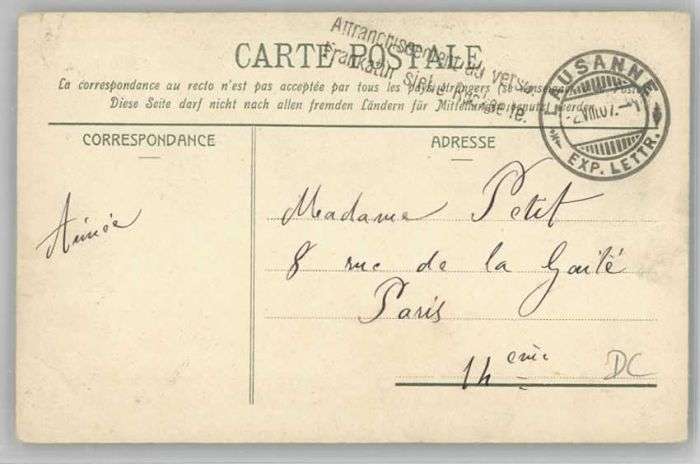 Affranchissement au verso.
Frankatur siehe Rückseite.
CARTE POSTALE
La correspondance au recto n'est pas acceptée par tous les pays étrangers (se renseigner Poste)
Diese Seite darf nicht nach allen fremden Ländern für Mitteilungen benutzt werden.
LAUSANNE
2.VIII.07.-1
EXP. LETTR.
CORRESPONDANCE
ADRESSE
Aimée
Madame Petit
8 rue de la Gaité
Paris
14 eme
DC